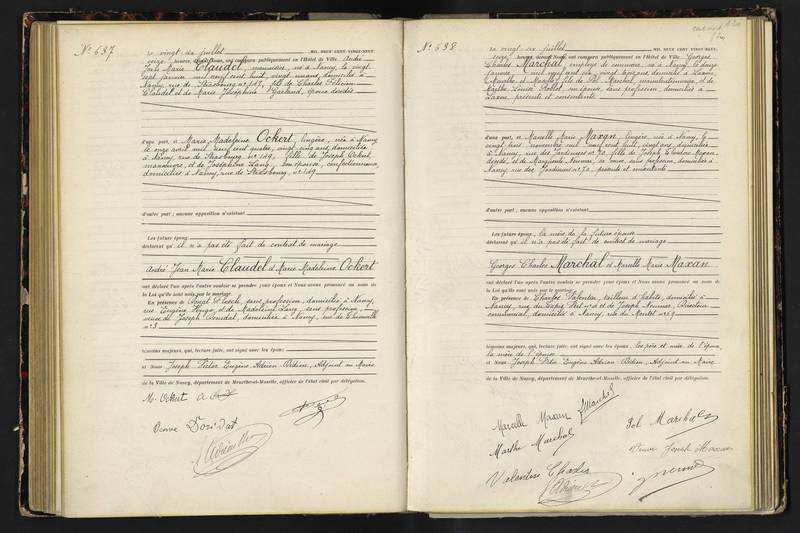 N° 637
Le vingt de juillet MIL NEUF CENT VINGT-NEUF,
seize heures, devant Nous, ont comparu publiquement en l'Hôtel de Ville André
Jean Marie Claudel, manœuvre, né à Nancy, le vingt
sept janvier mil neuf cent huit, vingt un ans, domicilié à
Nancy, rue de Strasbourg n° 167, fils de Charles Félicien
Claudel et de Marie Joséphine, époux décédés
d'une part, et Marie Madeleine Ockert, lingère, née à Nancy
le onze avril mil neuf cent quatre, vingt cinq ans, domiciliée
à Nancy, rue de Strasbourg n° 149, fille de Joseph Ockert,
manœuvre, et de Joséphine Lang, son épouse,
domiciliés à Nancy, rue de Strasbourg, n° 149
d'autre part ; aucune opposition n'existant
Les futurs époux
déclarent qu'il n'a pas été fait de contrat de mariage
André Jean Marie Claudel et Marie Madeleine Ockert
ont déclaré l'un après l'autre vouloir se prendre pour époux et Nous avons prononcé au nom de
la Loi qu'ils sont unis par le mariage.
En présence de, sans profession, domiciliée à Nancy,
rue Eugène Hugo, et de Madeleine Lang, sans profession,
veuve de Joseph, domiciliée à Nancy, rue de Thionville
n° 3
témoins majeurs, qui, lecture faite, ont signé avec les époux
et Nous Joseph Victor Eugène Adrien, Adjoint au Maire
de la Ville de Nancy, département de Meurthe-et-Moselle, officier de l'état civil par délégation.
M. Ockert
Veuve
N° 638
Le vingt de juillet MIL NEUF CENT VINGT-NEUF,
seize heures, devant Nous, ont comparu publiquement en l'Hôtel de Ville Georges
Charles Marchal, employé de commerce, né à Nancy le douze
janvier mil neuf cent six, vingt trois ans, domicilié à Laxou,
Marchal, et de
Marthe Louise, son épouse, sans profession, domiciliés à
Laxou, présents et consentants
d'une part, et Marcelle Marie Maxan, lingère, née à Nancy, le
vingt novembre mil neuf cent huit, vingt ans, domiciliée
à Nancy, rue des Jardiniers n° 70, fille de Joseph Maxan,
décédé, et de Marguerite, sa veuve, sans profession, domiciliée à
Nancy, rue des Jardiniers n° 70, présente et consentante
d'autre part ; aucune opposition n'existant
Les futurs époux, la mère de la future épouse
déclarent qu'il n'a pas été fait de contrat de mariage
Georges Charles Marchal et Marcelle Marie Maxan
ont déclaré l'un après l'autre vouloir se prendre pour époux et Nous avons prononcé au nom de
la Loi qu'ils sont unis par le mariage.
En présence de Charles Valentin, tailleur d'habits, domicilié à
Nancy, rue, et de Joseph, Directeur
commercial, domicilié à Nancy, rue du Montet n° 59
témoins majeurs, qui, lecture faite, ont signé avec les époux, les père et mère de l'époux,
la mère de l'épouse
et Nous Joseph Victor Eugène Adrien, Adjoint au Maire
de la Ville de Nancy, département de Meurthe-et-Moselle, officier de l'état civil par délégation.
Marcelle Maxan Marchal
Marthe Marchal
Marchal
Veuve Joseph Maxan
Valentin Charles